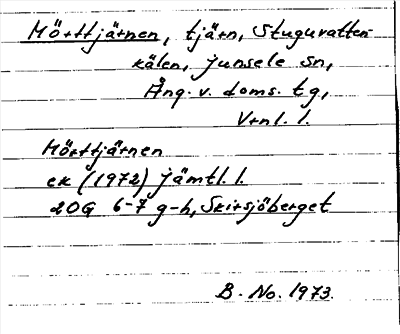 Mörttjärnen, tjärn, Stuguvatten-
kälen, Junsele sn,
Ång. v. doms. tg,
V-rnl. l.
Mörttjärnen
ek (1972) Jämtl. l.
20G 6-7 g-h, Skirsjöberget
B. No. 1973.